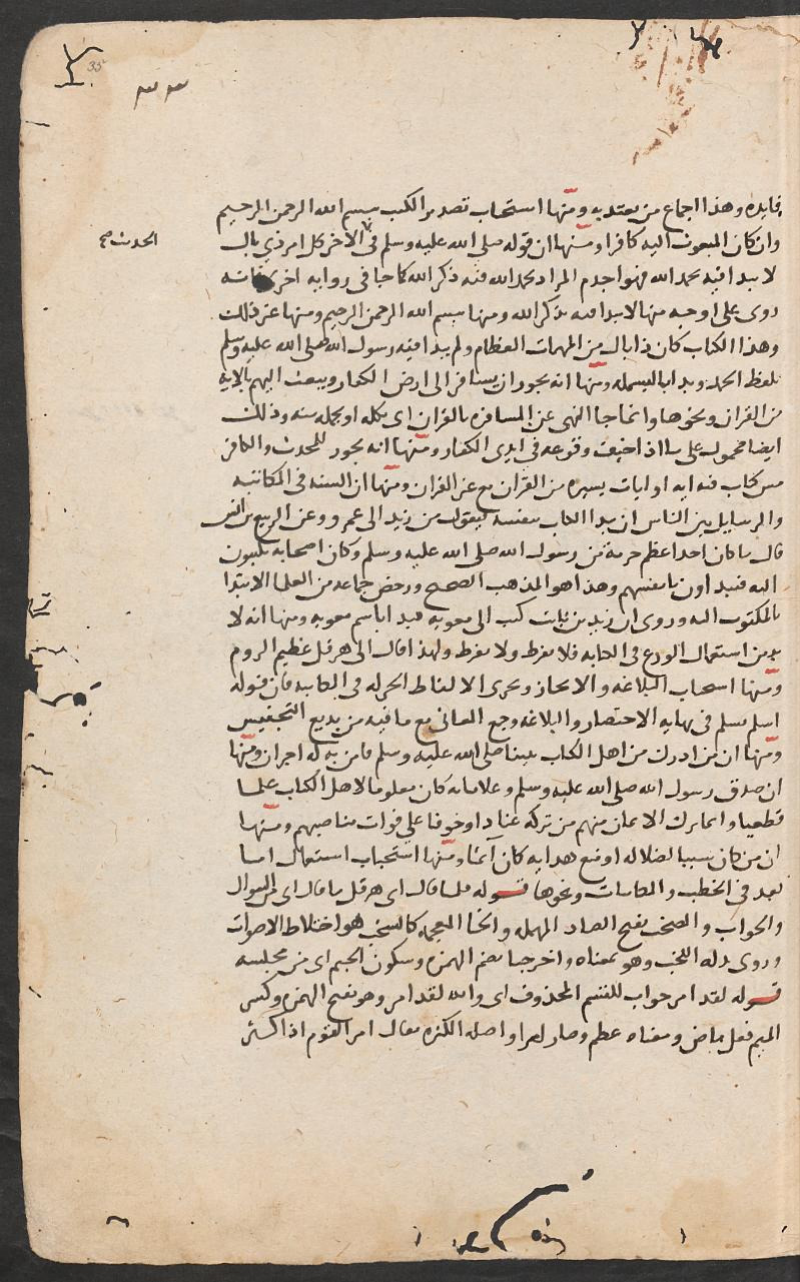 35
فايده وهذا اجماع من يعتد به ومنها استحباب تصدير الكتب ببسم الله الرحمن الرحيم
وان كان المبعوث اليه كافرا ومنها ان قوله صلى الله عليه وسلم في الاخر كل امر ذي بال
الحديث صح
لا يبدا فيه بحمد الله فهو اجذم المراد بحمد الله فيه ذكر الله كما جا في روايه اخرى فانه
روى على اوجه منها لا يبدا فيه بذكر الله ومنها ببسم الله الرحمن الرحيم ومنها غير ذلك
وهذا الكتاب كان ذا بال من المهمات العظام ولم يبدا فيه رسول الله صلى الله عليه وسلم
بلفظ الحمد وبدا بالبسمله ومنها انه يجوز ان يسافر الى ارض الكفار ويبعث اليهم بالايه
من القران ونحوها وانما جا النهى عن المسافره بالقران اى بكله او بجمله منه وذلك
ايضا محمول على ما اذا خيف وقوعه في ايدى الكفار ومنها انه يجوز للمحدث والكافر
مس كتاب فيه ايه او ايات يسيره من القران مع غير القران ومنها ان السنه في المكاتبه
والرسايل بين الناس ان يبدا الكاتب بنفسه فيقول من زيد الى عمرو وعن الربيع بن انس
قال ما كان احد اعظم حرمة من رسول الله صلى الله عليه وسلم وكان اصحابه يكتبون
اليه فيبداون بانفسهم وهذا هو المذهب الصحيح ورخص جماعه من العلما الابتدا
بالمكتوب اليه وروى ان زيد بن ثابت كتب الى معويه فبدا باسم معويه ومنها انه لا
بد من استعمال الورع في الكتابه فلا يفرط ولا يفرط ولهذا قال الى هرقل عظيم الروم
ومنها استحباب البلاغه والايجاز وتحرى الالفاظ الجزله في المكاتبه فان قوله
اسلم تسلم في نهايه الاختصار والبلاغه وجمع المعانى مع ما فيه من بديع التجنيس
ومنها ان من ادرك من اهل الكتاب نبينا صلى الله عليه وسلم فامن به له اجران ومنها
ان صدق رسول الله صلى الله عليه وسلم وعلاماته كان معلوما لاهل الكتاب علما
قطعيا وانما ترك الايمان منهم من تركه عنادا وخوفا على فوات مناصبهم ومنها
ان من كان سببا لضلاله او منع هدايه كان آثما ومنها استحباب استعمال اما
بعد في الخطب والمكاتبات ونحوها قوله فلما قال اى هرقل ما قال اى من السوال
والجواب والصخب بفتح الصاد المهمله والخا المعجمه كالسخب هو اختلاط الاصوات
وروى بدله اللجب وهو بمعناه واخرجنا بضم الهمزه وسكون الجيم اى من مجلسه
قوله لقد امر جواب للقسم المحذوف اى والله لقد امر وهو بفتح الهمزه وكسر
الميم فعل ماض ومعناه عظم وصار امرا واصله الكثره يقال امر القوم اذا كثر